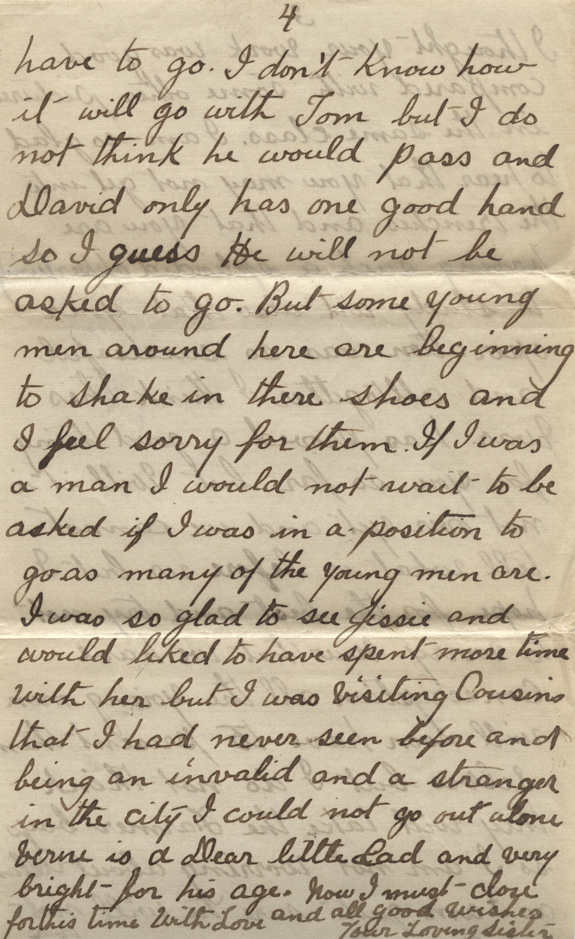 4
have to go. I don't know how
it will go with Tom but I do
not think he would pass and
David only has one good hand
so I guess He will not be
asked to go. But some young
men around here are beginning
to shake in there shoes and
I feel sorry for them. If I was
a man I would not wait to be
asked if I was in a position to
go as many of the young men are.
I was so glad to see Jissie and
would liked to have spent more time
with her but I was visiting Cousins
that I had never seen before and
being an invalid and a stranger
in the city I could not go out alone
Verne is a Dear little Lad and very
bright for his age. Now I must close
for this time With Love and all good wishes
Your Loving Sister